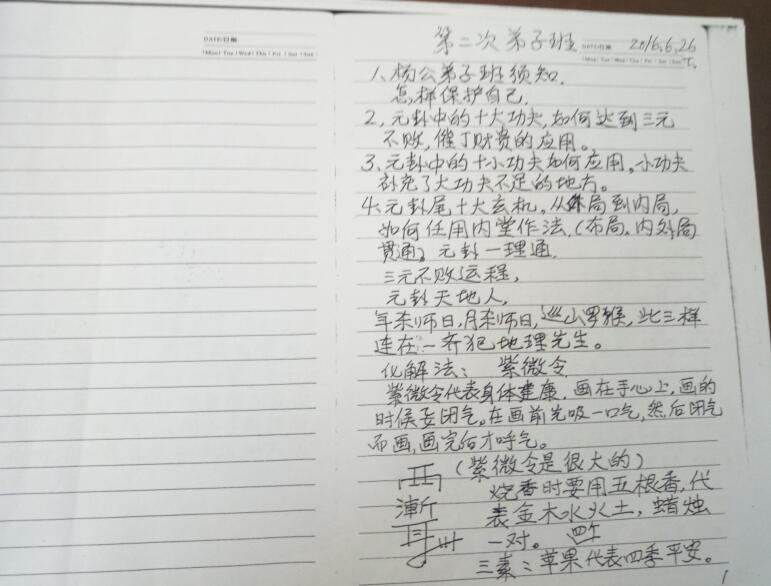 DATE/日期
Mon | Tue | Wed | Thu | Fri | Sat | Sun
第二次弟子班 DATE/日期 2016.6.26
Mon | Tue | Wed | Thu | Fri | Sat | Sun
1、杨公弟子班须知.
怎样保护自己.
2、元卦中的十大功夫,如何达到三元
不败,催丁财贵的应用。
3、元卦中的十小功夫如何应用。小功夫
补充了大功夫不足的地方。
4、元卦尾十大玄机。从外局到内局,
如何任用内堂作法.(布局。内外局
贯通)元卦一理通.
三元不败运程,
元卦天地人,
年杀师日,月杀师日,巡山罗猴,此三样
连在一齐犯地理先生。
化解法: 紫微令
紫微令代表身体建康.画在手心上,画的
时候要闭气。在画前先吸一口气,然后闭气
而画,画完后才呼气。
(紫微令是很大的)
烧香时要用五根香,代
漸
表金木水火土,蜡烛
一对。 四个
三素:苹果代表四季平安。
1